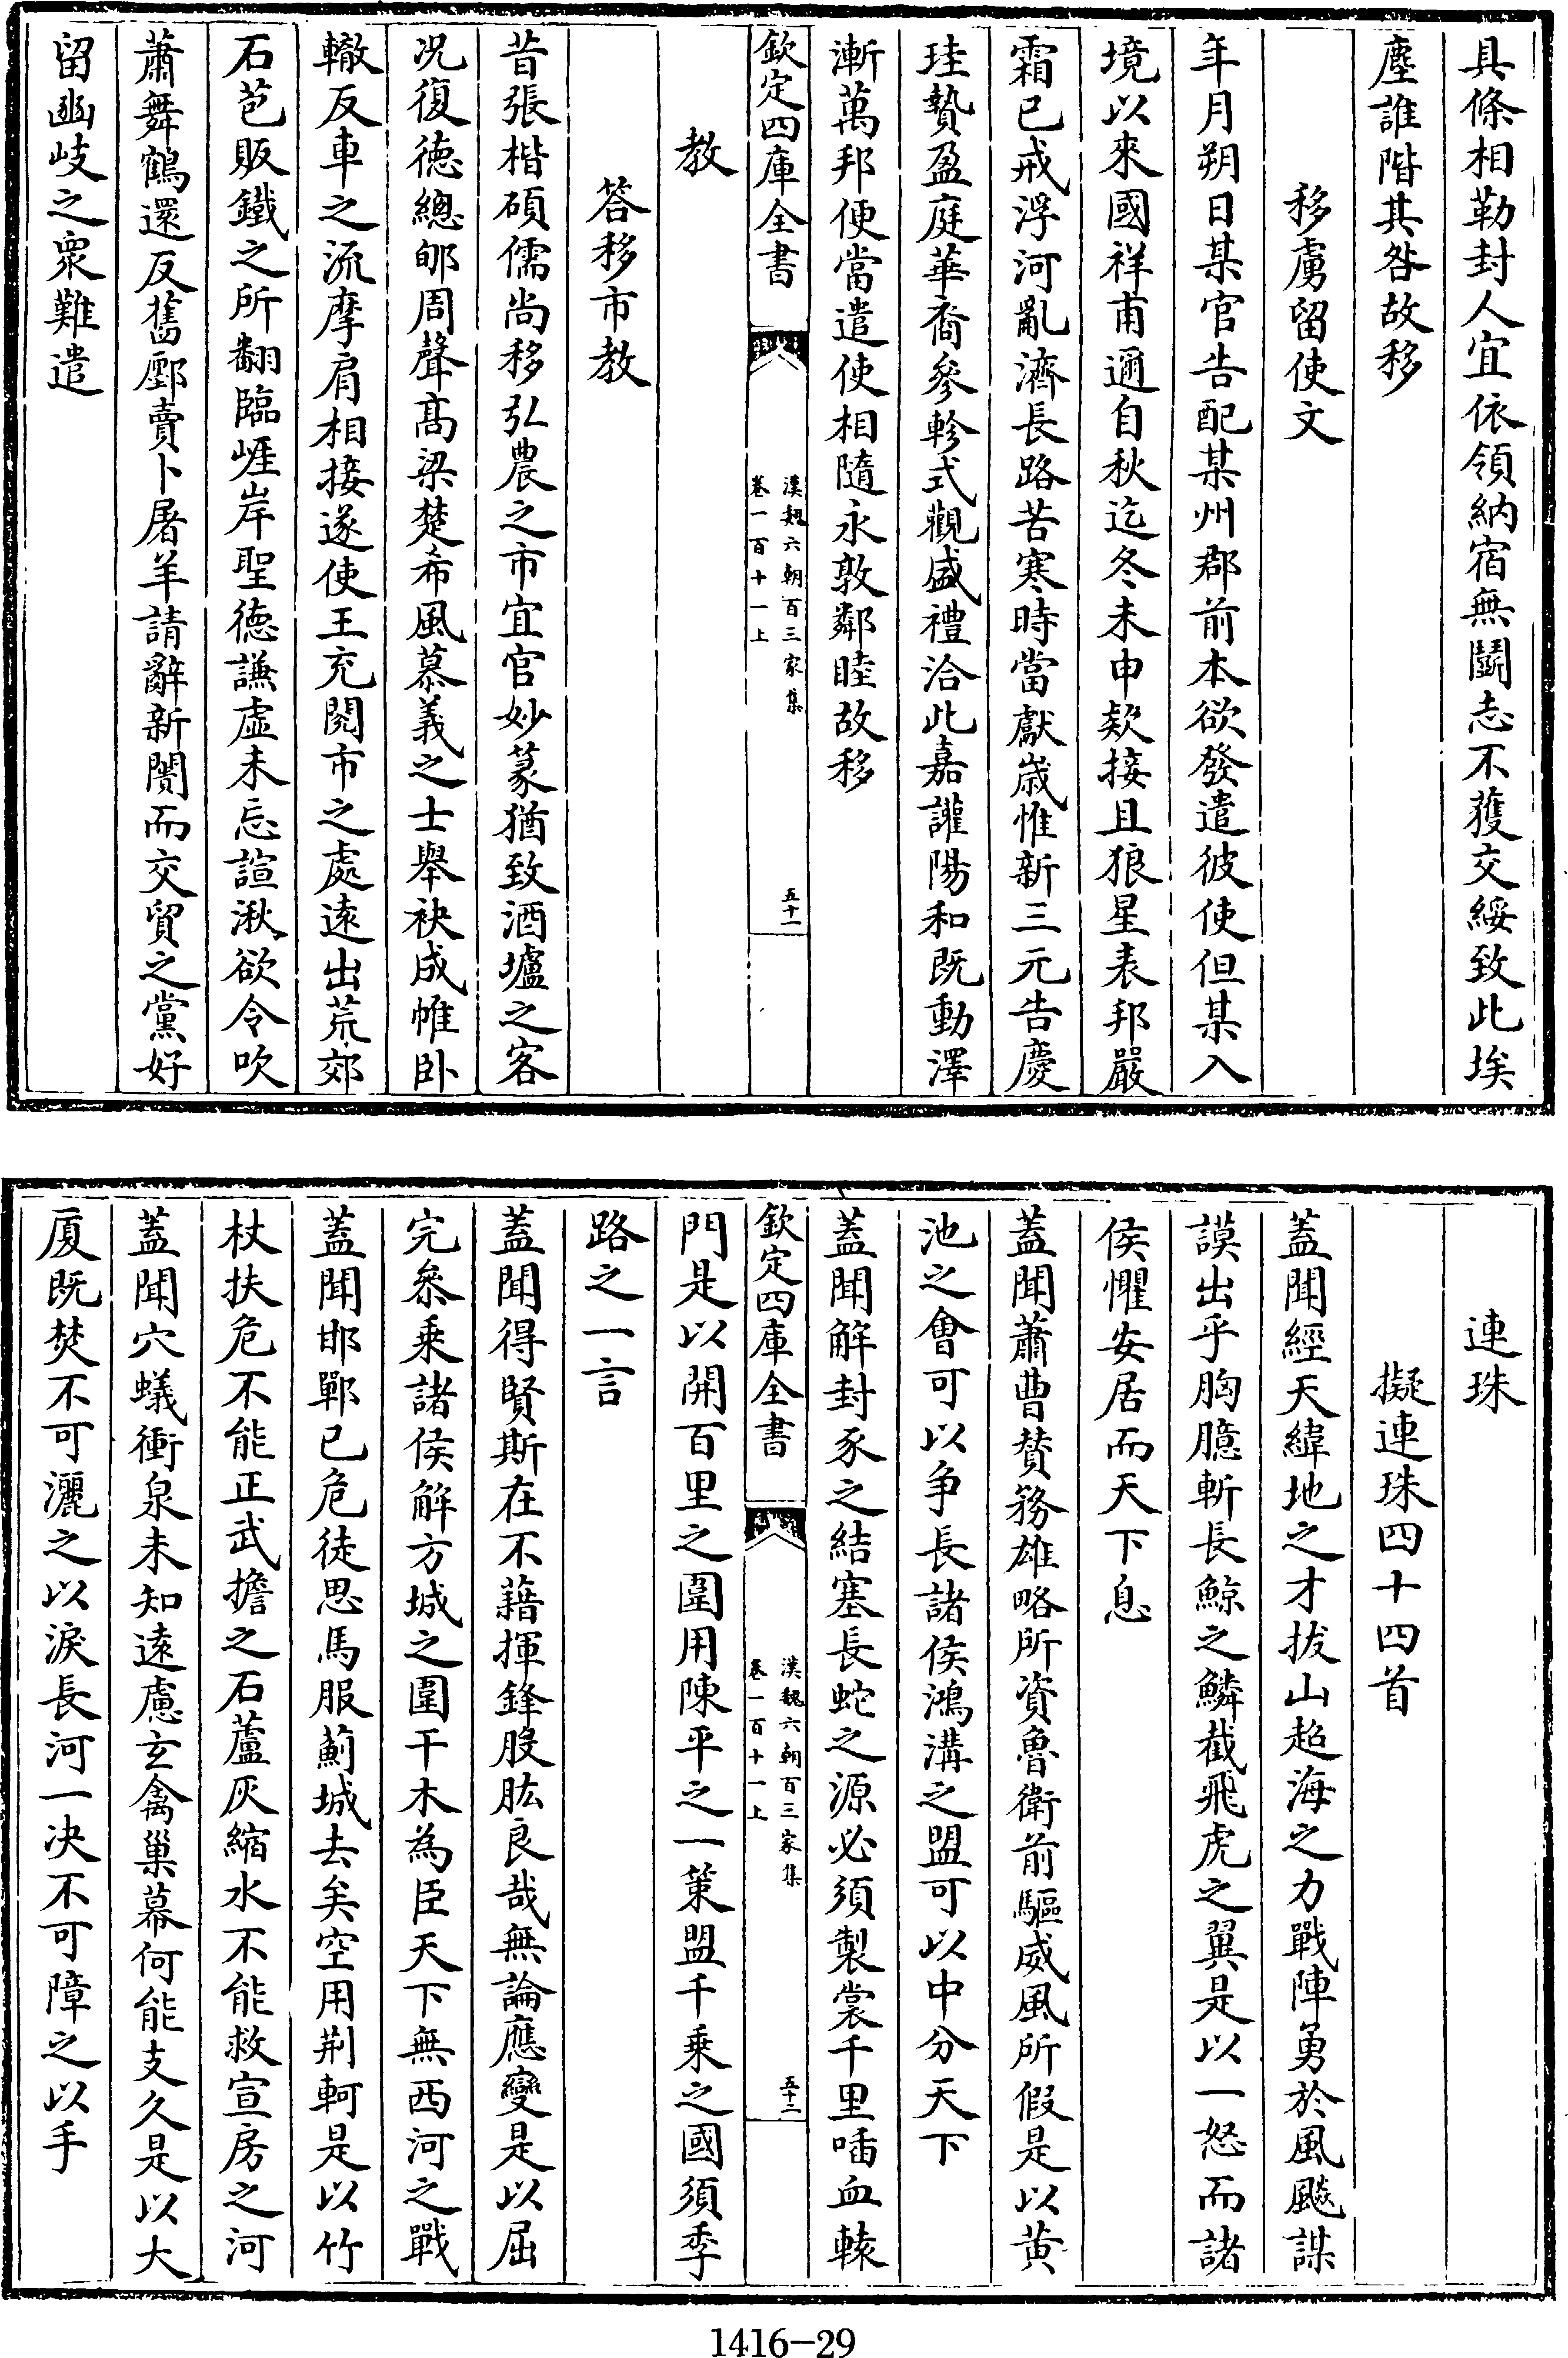 具條相勒封人宜依領納宿無鬭志不獲交綏致此埃
塵誰階其咎故移
移虜留使文
年月朔日某官告配某州郡前本欲發遣彼使但某入
境以來國祥甫邇自秋迄冬未申欵接且狼星表邦嚴
霜已戒浮河亂濟長路苦寒時當獻歲惟新三元告慶
珪贄盈庭華裔參軫式觀盛禮洽此嘉讙陽和既動澤
漸萬邦便當遣使相隨永敦鄰睦故移
欽定四庫全書
漢魏六朝百三家集
卷一百十一上
五十一
教
答移市教
昔張楷碩儒尚移弘農之市宜官妙篆猶致酒壚之客
况復德總郇周聲髙梁楚希風慕義之士舉袂成帷卧
轍反車之流摩肩相接遂使王充閱市之處逺出荒郊
石苞販鐵之所翻臨崖岸聖德謙虛未忘諠湫欲令吹
蕭舞鶴還反舊鄽賣卜屠羊請辭新闤而交貿之黨好
留豳岐之衆難遣
連珠
擬連珠四十四首
蓋聞經天緯地之才拔山超海之力戰陣勇於風飈謀
謨出乎胸臆斬長鯨之鱗截飛虎之翼是以一怒而諸
侯懼安居而天下息
蓋聞蕭曹贊務雄略所資魯衛前驅威風所假是以黄
池之會可以争長諸侯鴻溝之盟可以中分天下
蓋聞解封豕之結塞長蛇之源必須製裳千里喢血轅
欽定四庫全書
漢魏六朝百三家集
卷一百十一上
五十二
門是以開百里之圍用陳平之一策盟千乗之國須季
路之一言
蓋聞得賢斯在不藉揮鋒股肱良哉無論應變是以屈
完叅乗諸侯解方城之圍干木為臣天下無西河之戰
蓋聞邯鄲已危徒思馬服薊城去矣空用荆軻是以竹
杖扶危不能正武擔之石蘆灰縮水不能救宣房之河
蓋聞穴蟻衝泉未知逺慮玄禽巢幕何能支久是以大
厦既焚不可灑之以淚長河一决不可障之以手
1416-29